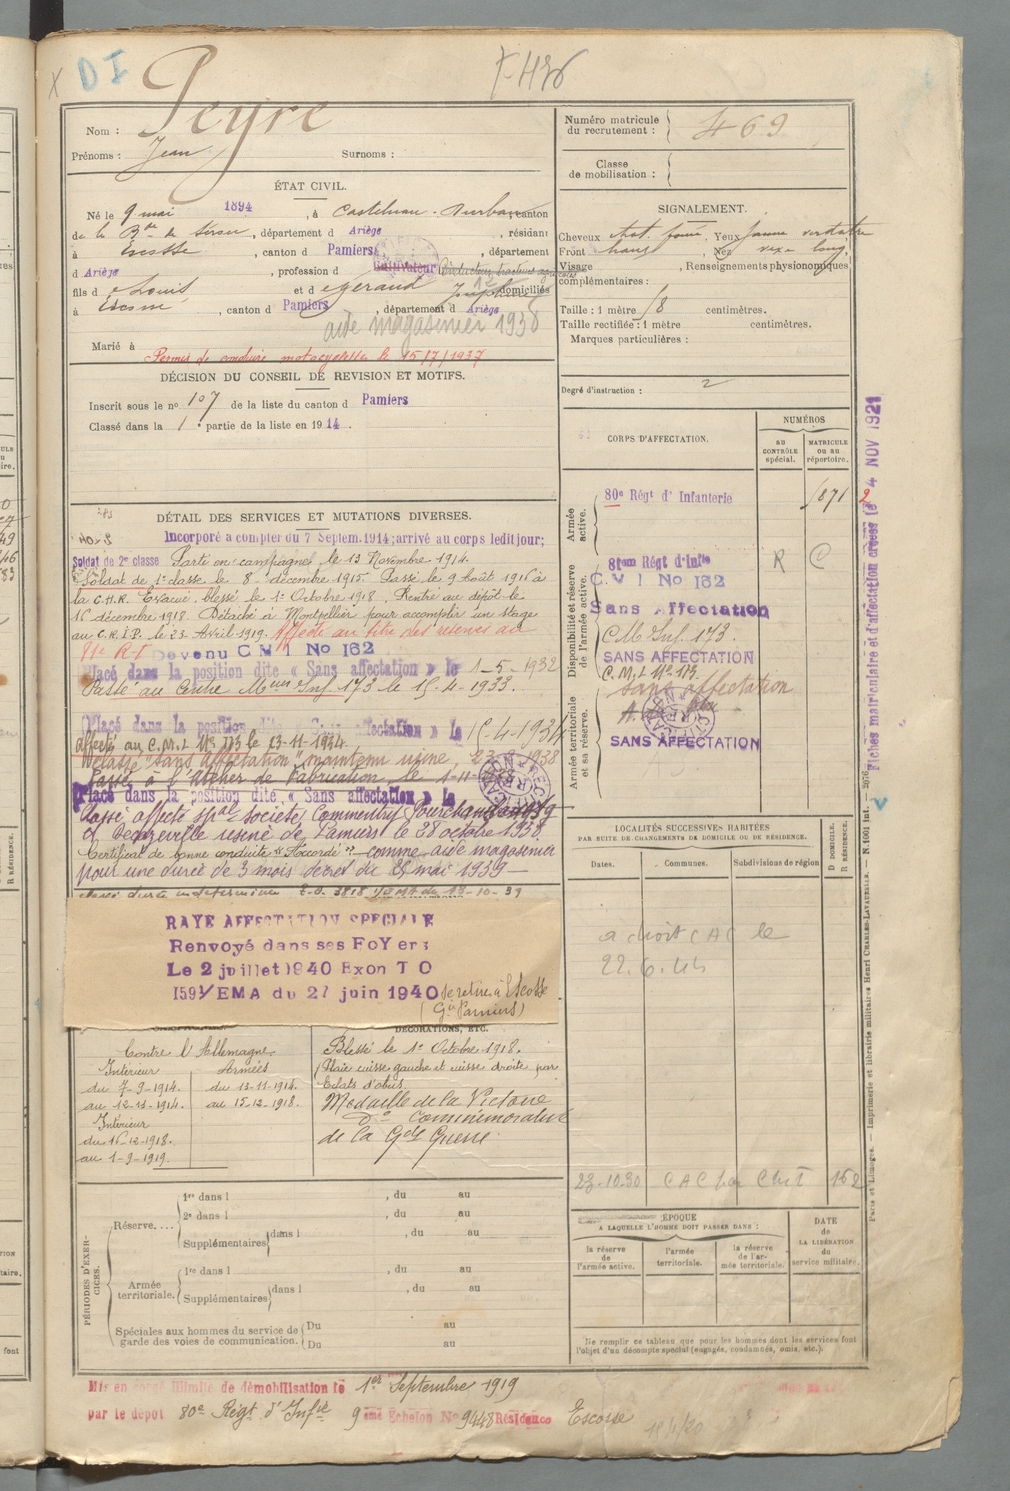 DI
Nom : Peyre
Prénoms : Jean Surnoms :
ÉTAT CIVIL.
Né le 9 mai 1894, à Castelnau-Durban canton
de la Bde de Sérou, département d Ariège, résidant
à Escosse, canton d Pamiers, département
d Ariège, profession d Cultivateur
fils d e Louis et d domiciliés
à Escosse, canton d Pamiers, département d Ariège
aide magasinier 1938
Marié à
Permis de conduire motocyclettes le 15/7/1937
DÉCISION DU CONSEIL DE REVISION ET MOTIFS.
Inscrit sous le no 107 de la liste du canton d Pamiers
Classé dans la 1e partie de la liste en 1914.
DÉTAIL DES SERVICES ET MUTATIONS DIVERSES.
Incorporé a compter du 7 Septem. 1914; arrivé au corps ledit jour;
Soldat de 2e classe Parti en campagne le 13 Novembre 1914.
Soldat de 1e classe le 8 décembre 1915. Passé le 9 Août 1916 à
la C.H.R. Evacué, blessé le 1e Octobre 1918. Rentré au dépôt le
16 décembre 1918. Détaché à Montpellier pour accomplir un stage
au C.R.I.P. le 23 Avril 1919. Affecté au titre des réserves au
81e R.I. Devenu C M I No 162
Placé dans la position dite « Sans affectation » le 1-5-1932
Passé au Centre Meur Inf. 173 le 15-4-1933.
(Placé dans la position dite « Sans affectation » le 15-4-1934
affecté au C.M.I. No 173 le 13-11-1934.
Reclassé "sans affectation" maintenu usine,
Passé à l'Atelier de Fabrication le
Placé dans la position dite « Sans affectation » le
Passé affecté spal société Commentry Fourchambault
et Decazeville usine de Pamiers le 28 octobre 1938.
Certificat de bonne conduite "Accordé" comme aide magasinier
pour une durée de 3 mois décret du mai 1939
durée indéterminée 13-10-39
RAYE AFFECTATION SPECIALE
Renvoyé dans ses FoYers
Le 2 juillet 1940 Exon T O
1591/EMA du 27 juin 1940 se retire à Escosse
(Gie Pamiers)
DÉCORATIONS, ETC.
Contre l'Allemagne
Intérieur Armées
du 7-9-1914. du 13-11-1914.
au 12-11-1914. au 15-12-1918.
Intérieur
du 16-12-1918.
au 1-9-1919.
Blessé le 1e Octobre 1918.
Plaie cuisse gauche et cuisse droite par
Eclats d'obus
Médaille de la Victoire
do Commémorative
de la Gde Guerre.
PÉRIODES D'EXERCICES.
Réserve....
1re dans l , du au
2e dans l , du au
Supplémentaires dans l , du au
Armée territoriale.
1re dans l , du au
Supplémentaires dans l , du au
Spéciales aux hommes du service de garde des voies de communication.
Du au
Du au
Mis en congé illimité de démobilisation le 1er Septembre 1919
par le dépot 80e Régt d'Infie 9 eme Echelon No 9448 Résidence Escosse
Numéro matricule du recrutement : 469
Classe de mobilisation :
SIGNALEMENT.
Cheveux chat. foncé, Yeux jaune verdâtre
Front moyen, Nez long,
Visage , Renseignements physionomiques
complémentaires :
Taille : 1 mètre centimètres.
Taille rectifiée : 1 mètre centimètres.
Marques particulières :
Degré d'instruction : 2
CORPS D'AFFECTATION.
NUMÉROS
AU CONTRÔLE spécial.
MATRICULE OU AU répertoire.
Armée active.
80e Régt d'Infanterie
Disponibilité et réserve de l'armée active.
81eme Régt d'Infie R C
C M I No 162
Sans Affectation
C.M. Inf. 173.
SANS AFFECTATION
C.M.I. No 173.
sans affectation
Armée territoriale et sa réserve.
SANS AFFECTATION
LOCALITÉS SUCCESSIVES HABITÉES
PAR SUITE DE CHANGEMENTS DE DOMICILE OU DE RÉSIDENCE.
Dates. Communes. Subdivisions de région D DOMICILE. R RÉSIDENCE.
a droit CAC le
22.6.44
23.10.30 CAC par 162
ÉPOQUE
A LAQUELLE L'HOMME DOIT PASSER DANS :
la réserve de l'armée active.
l'armée territoriale.
la réserve de l'armée territoriale.
DATE de LA LIBÉRATION du service militaire.
Ne remplir ce tableau que pour les hommes dont les services font
l'objet d'un décompte spécial (engagés, condamnés, omis, etc.).
Fiches matriculaire et d'affectation créées le 4 NOV 1921
Paris et Limoges. — Imprimerie et librairie militaires Henri CHARLES-LAVAUZELLE.